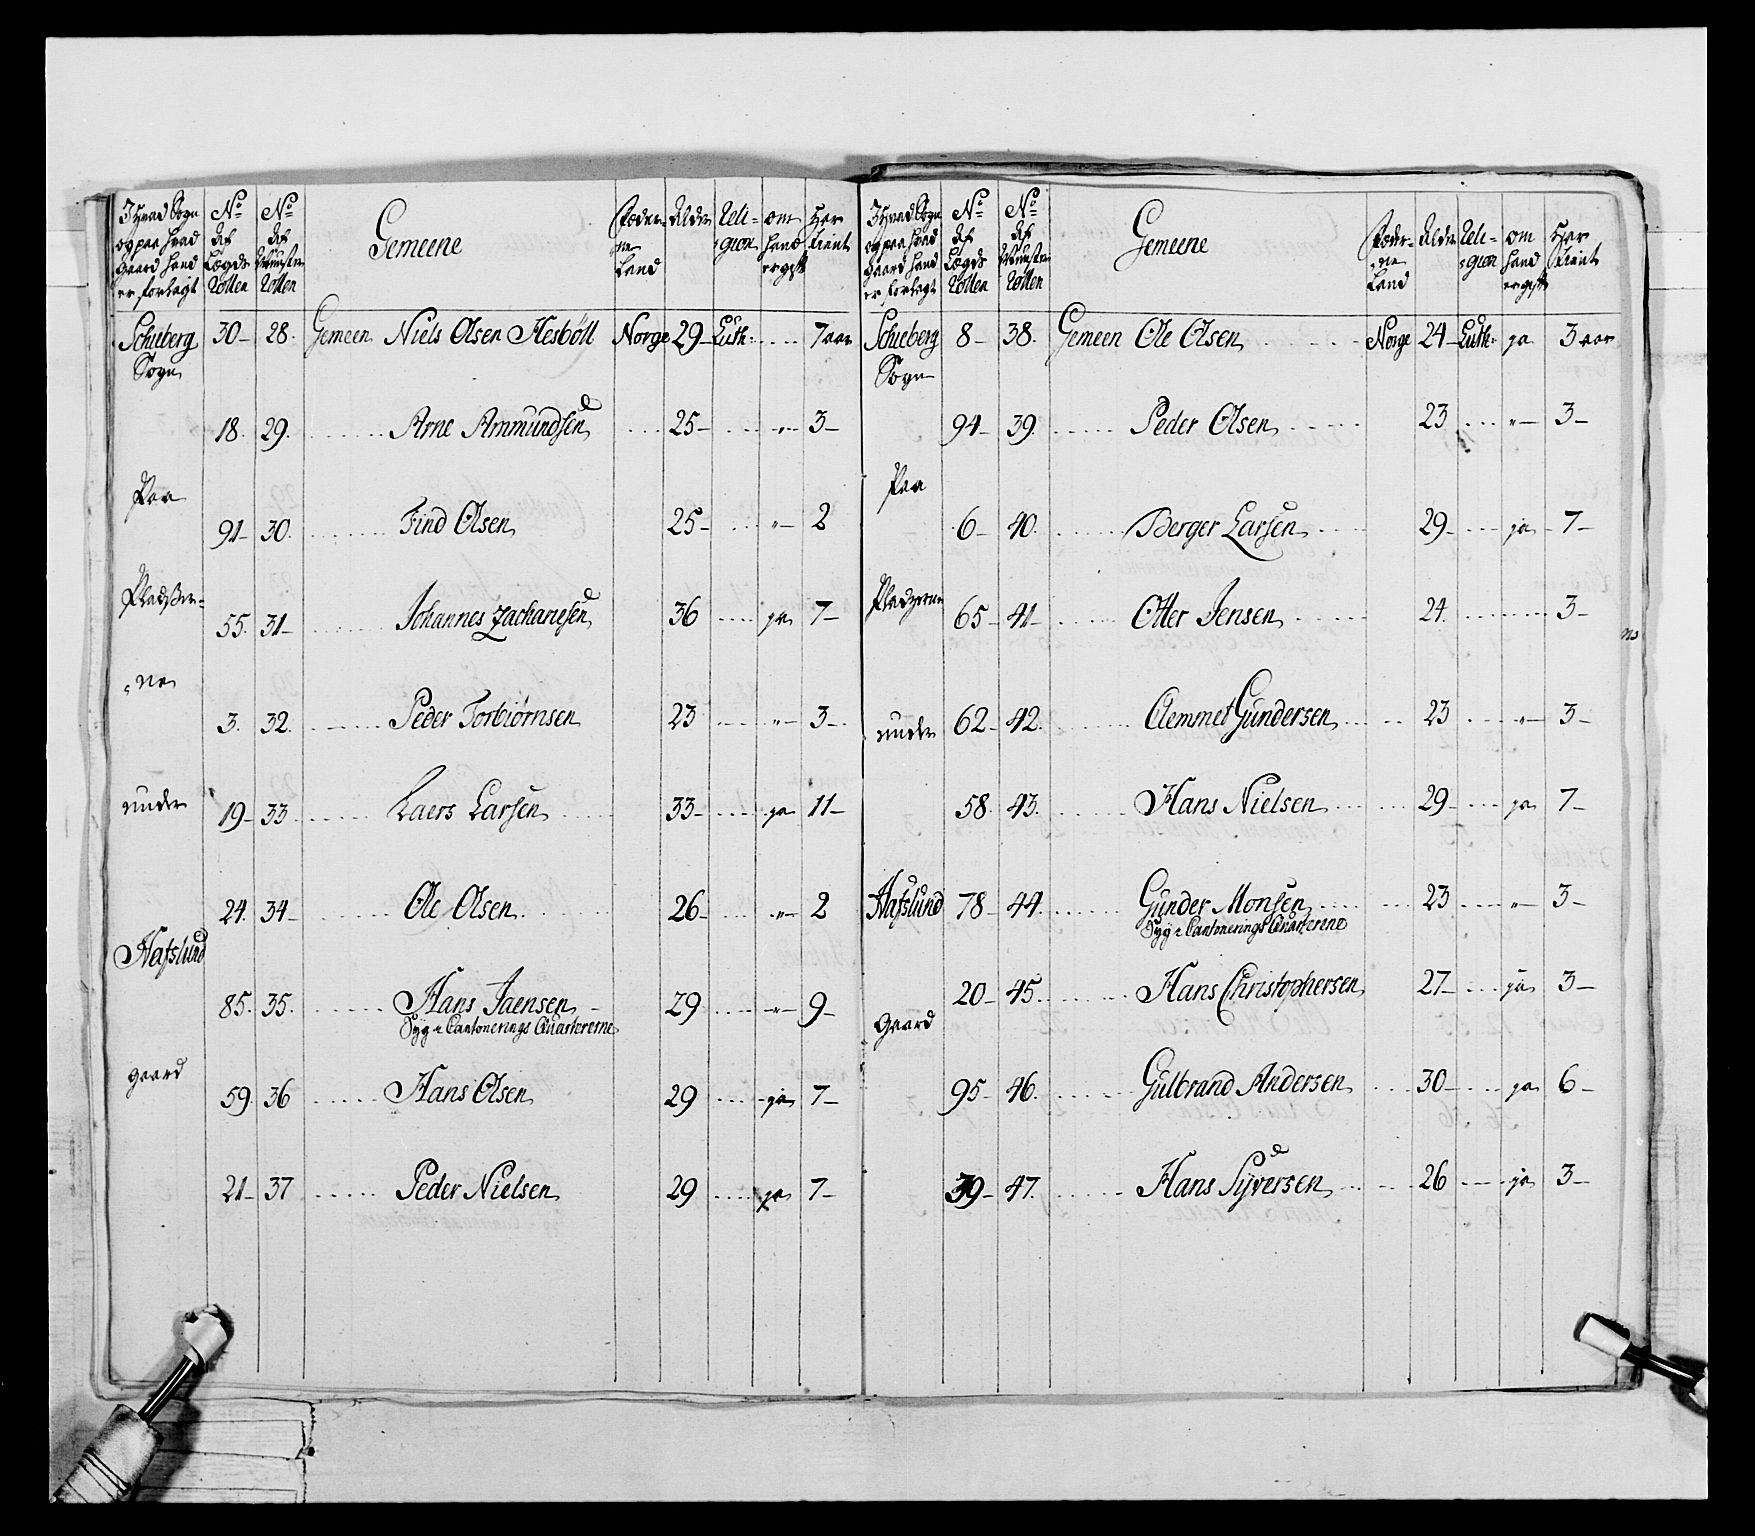 I Hvad Sogn og paa hvad Gaard hand er forlagt | No. af Lægds Rollen | No. af Munster Rollen | Gemeene | Føderne Land | Alder | Religion | om hand er gift | Har tient
Schieberg Sogn | 30- | 28. | Gemeen Niels Olsen Hesbøll | Norge | 29- | Luth: | .... | 7 aar
18. | 29. | Arne Ammundsen | 25- | .... | "- | 3-
Paa
91- | 30. | Find Olsen | 25- | .... | "- | 2
Pladsser=
55. | 31- | Johannes Zachariesen | 36 | .... | ja | 7-
=ne
3. | 32. | Peder Torbiørnsen | 23 | .... | "- | 3-
under
19- | 33 | Laers Larsen | 33- | .... | ja | 11-
24. | 34- | Ole Olsen | 26- | .... | "- | 2
Hafslund
85. | 35. | Hans Jaensen | 29 | .... | "- | 9-
Syg i Cantonerings Quarterene
gaard
59. | 36 | Hans Olsen | 29 | .... | ja | 7-
21- | 37 | Peder Nielsen | 29 | .... | ja | 7-
I Hvad Sogn og paa hvad Gaard hand er forlagt | No. af Lægds Rollen | No. af Munster Rollen | Gemeene | Føderne Land | Alder | Religion | om hand er gift | Har tient
Schieberg Sogn | 8- | 38. | Gemeen Ole Olsen | Norge | 24- | Luth: | ja | 3 aar
94- | 39. | Peder Olsen | 23 | .... | "- | 3-
Paa
6- | 40. | Berger Larsen | 29- | .... | ja | 7-
Pladzerne
65- | 41- | Otter Jensen | 24. | .... | 3-
under
62- | 42. | Clemmet Gundersen | 23 | .... | "- | 3-
58. | 43. | Hans Nielsen | 29- | .... | ja | 7-
Hafslund | 78- | 44. | Gunder Monsen | 23 | .... | "- | 3-
Syg i Cantonerings Quarterene
20- | 45. | Hans Christophersen | 27- | .... | ja | 3-
Gaard
95- | 46. | Gulbrand Andersen | 30- | .... | ja | 6-
39- | 47. | Hans Syversen | 26 | .... | ja | 3-